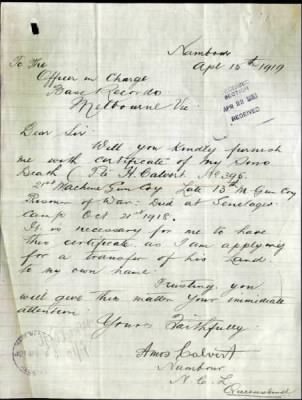 Nambour
Apl 15th 1919
To The
Officer in Charge
Base Records
Melbourne Vic
RECEIVED
Dear Sir
Will you kindly furnish
me with certificate of my Sons
Death (Pte H. Calvert No 396
21st Machine Gun Coy Late 13th M. Gun Coy
Prisoner of War. Died at
camp Oct 21st 1918.
It is necessary for me to have
this certificate as I am applying
for a transfer of his Land
to my own name.
Trusting you
will give this matter your immediate
attention
Yours Faithfully
Amos Calvert
Nambour
N. C. L.
Queensland